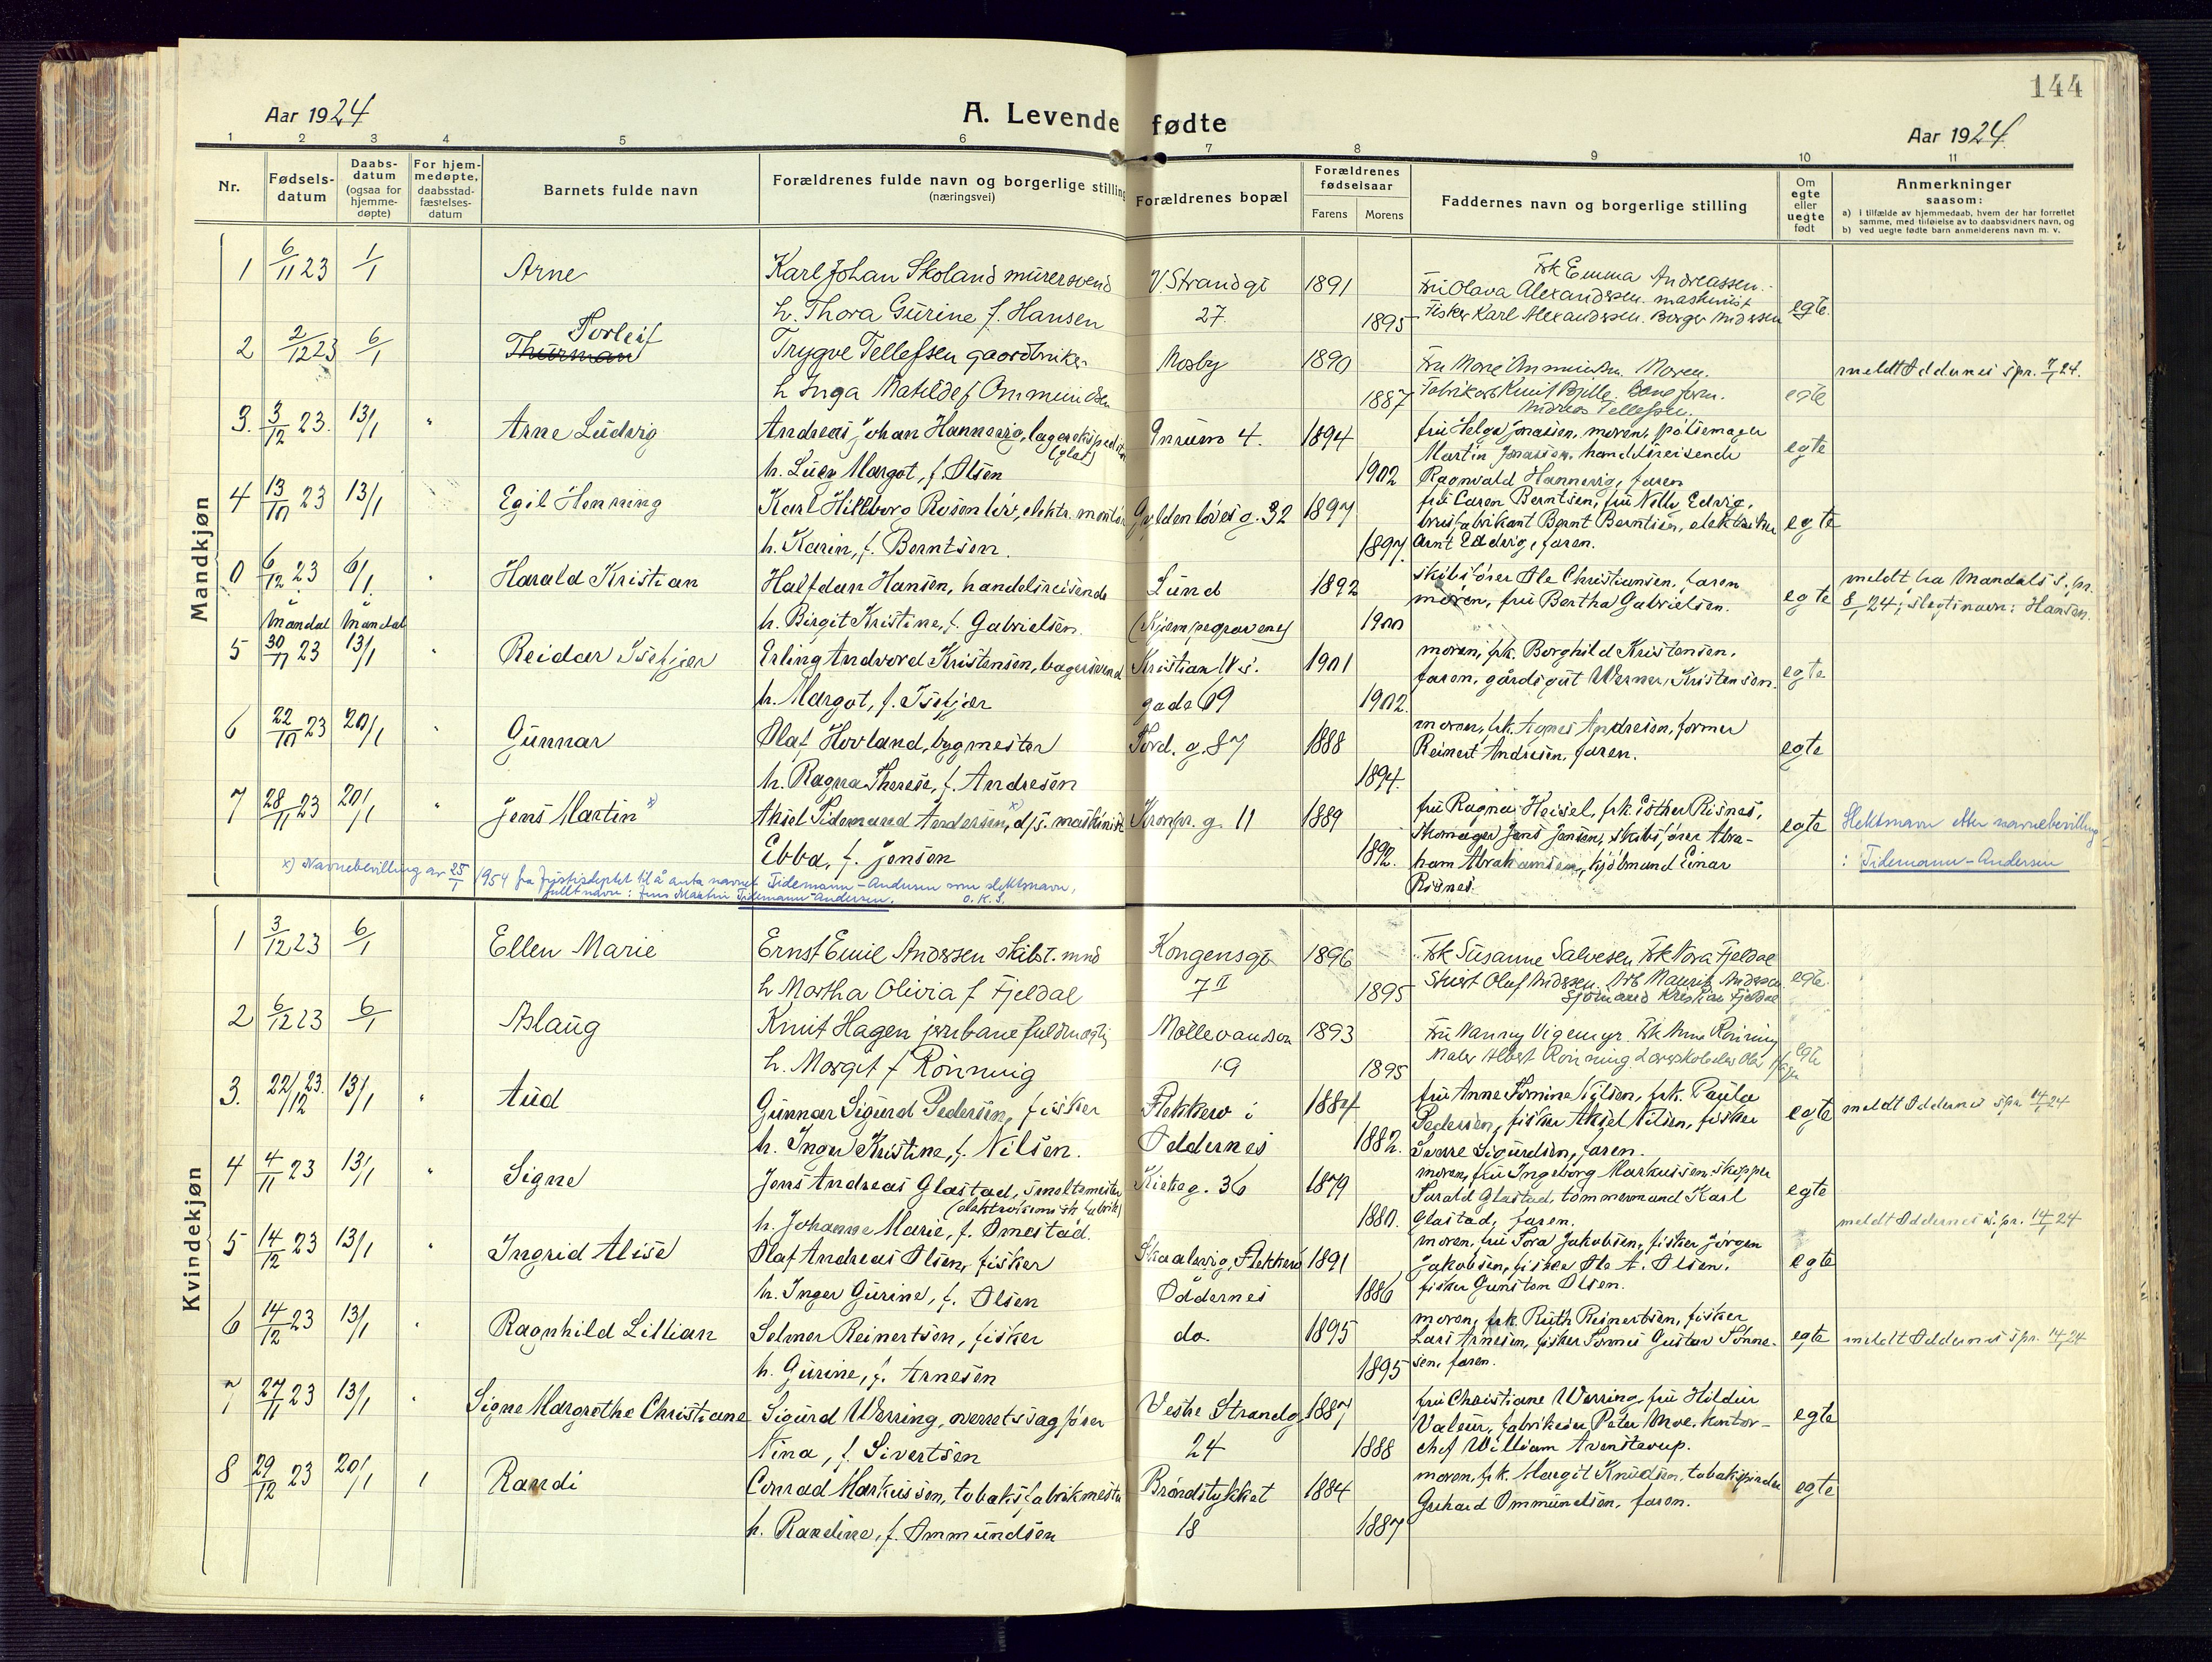 144
Aar 1924
A. Levende fødte
Aar 1924
1 2 3 4 5 6 7 8 9 10 11
Nr.
Fødsels-
datum
Daabs-
datum
(ogsaa for
hjemme-
døpte)
For hjem-
medøpte,
daabsstad-
fæstelses-
datum
Barnets fulde navn
Forældrenes fulde navn og borgerlige stilling
(næringsvei)
Forældrenes bopæl
Forældrenes
fødselsaar
Farens
Morens
Faddernes navn og borgerlige stilling
Om
egte
eller
uegte
født
Anmerkninger
saasom:
a) i tilfælde av hjemmedaab, hvem der har forrettet
samme, med tilføielse av to daabsvidners navn, og
b) ved uegte fødte barn anmelderens navn m. v.
Mandkjøn
1 6/11 23 1/1 Arne Karl Johan Skoland murersvend V. Strandgt 1891 Frk Emma Andreassen
Fru Olava Alexandersen. maskinist
h. Thora Gurine f. Hansen 27. 1895 Fisker Karl Alexandersen. Borger Andersen egte.
Torleif
2 2/12 23 6/1 Thurman Trygve Tellefsen gaardbruker Mosby 1890 Moren. meldt Oddernes spr. 7/1 24.
h Inga Matilde f Ommundsen 1887 egte
Andreas Tellefsen.
3. 3/12 23. 13/1 " Arne Ludvig Andreas Johan Hannevig, lagerekspeditør Grurum 4. 1894 fru Helga Jonassen, moren, pølsemager
(glas) Martin Jonassen, handelsreisende egte
h. Lucy Margot, f. Olsen 1902 Ragnvald Hannevig, faren
4 13/10 23 13/1 Egil Henning Karl Hillborg Rosenløv, elektr. montør Gyldenløves g. 32 1897 fru Caren Berntsen, fru Nelly Edvig,
brusfabrikant Bernt Berntsen, elektriker egte
h. Karin, f. Berntsen. 1897. Arnt Edvig, faren.
0 6/12 23 6/1 " Harald Kristian Halfdan Hansen, handelsreisende Lund 1892 skibsfører Ole Christiansen, faren
moren, fru Bertha Gabrielsen. egte meldt fra Mandals s. pr.
8/1 24; slegtsnavn: Hansen.
Mandal Mandal h. Birgit Kristine, f. Gabrielsen. (Kjempegravene) 1900
5 30/11 23 13/1 " Reidar Isefjær Erling Andvord Kristensen, bagersvend Kristian IV s. 1901 moren, frk. Borghild Kristensen,
faren, gårdsgut Werner Kristensen. egte
h. Margot, f. Isefjær gade 69 1902.
6 22/10 23 20/1 " Gunnar Olaf Hovland, bygmester Tord. g. 87 1888 moren, frk. Agnes Andresen, former
Reinert Andresen, faren. egte
h. Ragna Therese, f. Andresen 1894.
7 28/11 23 20/1 " Jens Martin x) Aksel Tidemand Andersen, x) d/s. maskinist Kronpr. g. 11 1889 fru Ragna Heisel, frk. Esther Risnes,
skomager Jens Jensen, skibsfører Abra- egte Slektsnavn etter navnebevilling
Ebba, f. Jensen 1892. ham Abrahamsen, kjøbmand Einar : Tidemann-Andersen
Risnes.
x) Navnebevilling av 25/1 1954 fra Justisdeptet til å anta navnet Tidemann-Andersen som slektsnavn,
fullt navn: Jens Martin Tidemann-Andersen. O.K.S.
Kvindekjøn
1 3/12 23 6/1 Ellen Marie Ernst Emil Andersen skibst. mnd Kongensgt 1896 Frk Susanne Salvesen Frk Nora Fjeldal
h Martha Olivia f Fjeldal 7 II 1895 Olaf Andersen. Arb Maurits Andersen egte.
Sjømand Kristian Fjeldal
2 6/12 23 6/1 Aslaug Knut Hagen jernbanefuldmægtig Møllevandsv 1893 Fru Nanny Vigemyr. Frk Anna Rønning
h. Margit f Rønning 19 1895 Maler Albert Rønning. egte
3. 22/12 23. 13/1 " Aud Gunnar Sigurd Pedersen, fisker Flekkerø i 1884 fru Anne Tomine Nilsen, frk. Paula
Pedersen, fisker Aksel Nilsen, fisker egte meldt Oddernes spr. 14/1 24
h. Inga Kristine, f. Nilsen. Oddernes 1882. Sverre Sigurdsen, faren.
4 4/11 23 13/1 " Signe Jens Andreas Glastad, smeltemester Kirkeg. 36 1879 moren, fru Ingeborg Markussen, skipper
(elektrokemisk fabrik) Tarald Glastad, tømmermand Karl egte
h. Johanne Marie, f. Omestad. 1880. Glastad, faren.
meldt Oddernes s. pr. 14/1 24
5 14/12 23 13/1 " Ingrid Alise Olaf Andreas Olsen, fisker Skaalevig, Flekkerø 1891 moren, fru Tora Jakobsen, fisker Jørgen
Jakobsen, fisker Ole A. Olsen, egte
h. Inger Gurine, f. Olsen Oddernes 1886 fisker Gunston Olsen.
6 14/12 23 13/1 " Ragnhild Lillian Selmer Reinertsen, fisker do. 1895 moren, frk. Ruth Reinertsen, fisker
Lars Arnesen, fisker Tomes Gustav Tønne- egte meldt Oddernes spr. 14/1 24
h. Gurine, f. Arnesen 1895 sen, faren.
7 27/11 23 13/1 " Signe Margrethe Christiane Sigurd Werring, overretssagfører Vestre Strandg 1887 fru Christiane Werring, fru Hildur
Valeur, fabrikeier Peter Moe, kontor- egte
Nina, f. Sivertsen 24 1888 chef William Avenstrup.
8 29/12 23 20/1 " Randi Conrad Markussen, tobaksfabrikmester Brøndstykket 1884 moren, frk. Margit Knudsen, tobakspinder
Gerhard Ommundsen, faren. egte
h. Randine, f. Ommundsen 18 1887